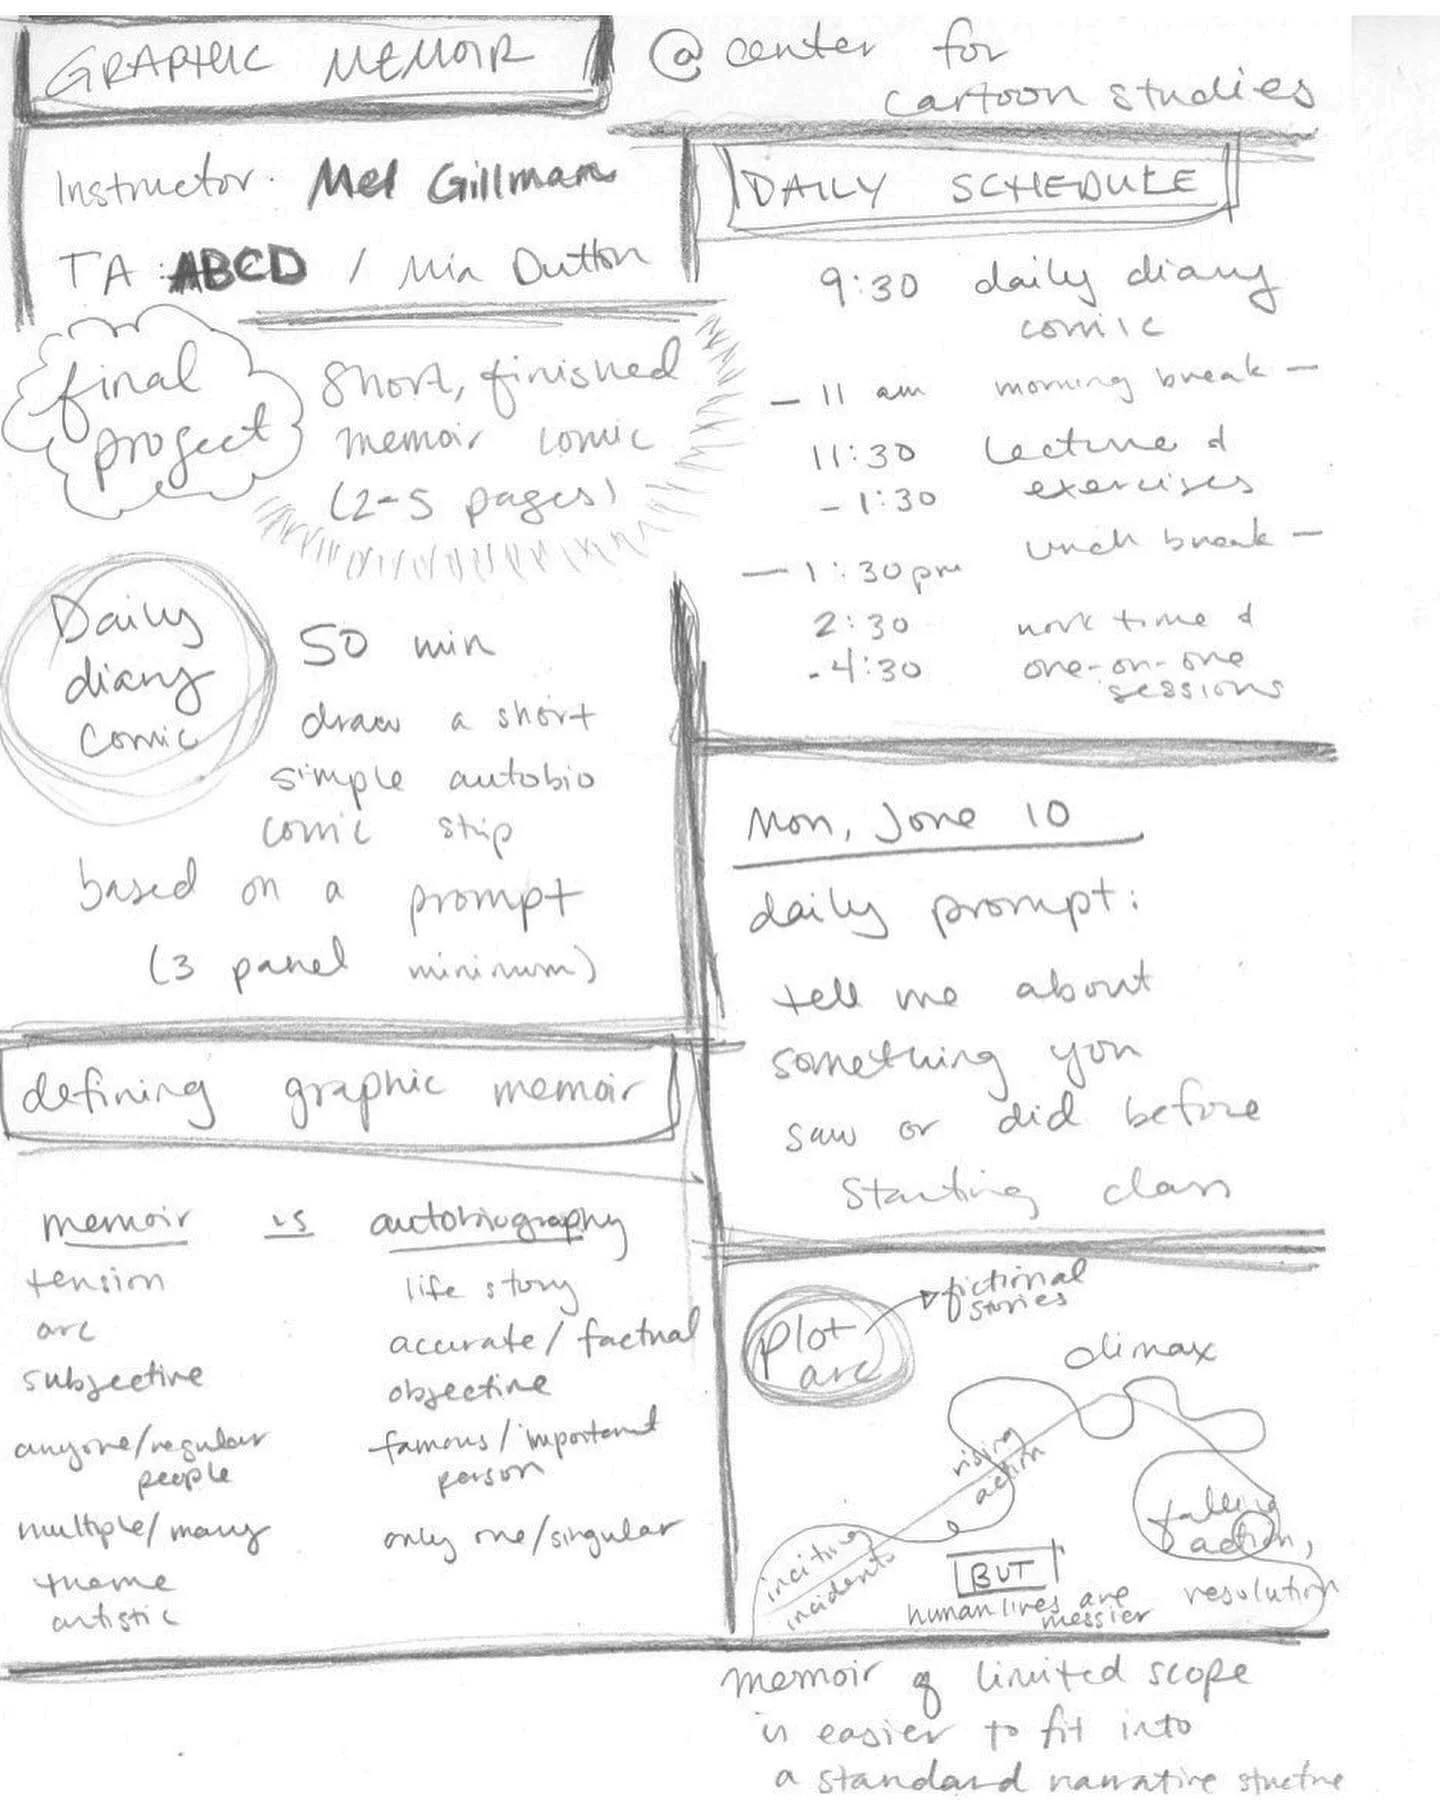 GRAPHIC MEMOIR
@ center for
cartoon studies
Instructor: Mel Gillman
TA: ABCD / Mia Dutton
final
project
short, finished
memoir comic
(2-5 pages)
Daily
diary
comic
50 min
draw a short
simple autobio
comic strip
based on a prompt
(3 panel minimum)
defining graphic memoir
memoir vs autobiography
tension life story
arc accurate/factual
subjective objective
anyone/regular famous/important
people person
multiple/many only one/singular
theme
artistic
DAILY SCHEDULE
9:30 daily diary
comic
- 11 am morning break -
11:30 Lecture &
- 1:30 exercises
- 1:30pm lunch break -
2:30 work time &
- 4:30 one-on-one
sessions
Mon, June 10
daily prompt:
tell me about
something you
saw or did before
starting class
plot
arc
fictional
stories
climax
rising
action
inciting
incidents
falling
action,
resolution
BUT
human lives are
messier
memoir of limited scope
is easier to fit into
a standard narrative structure